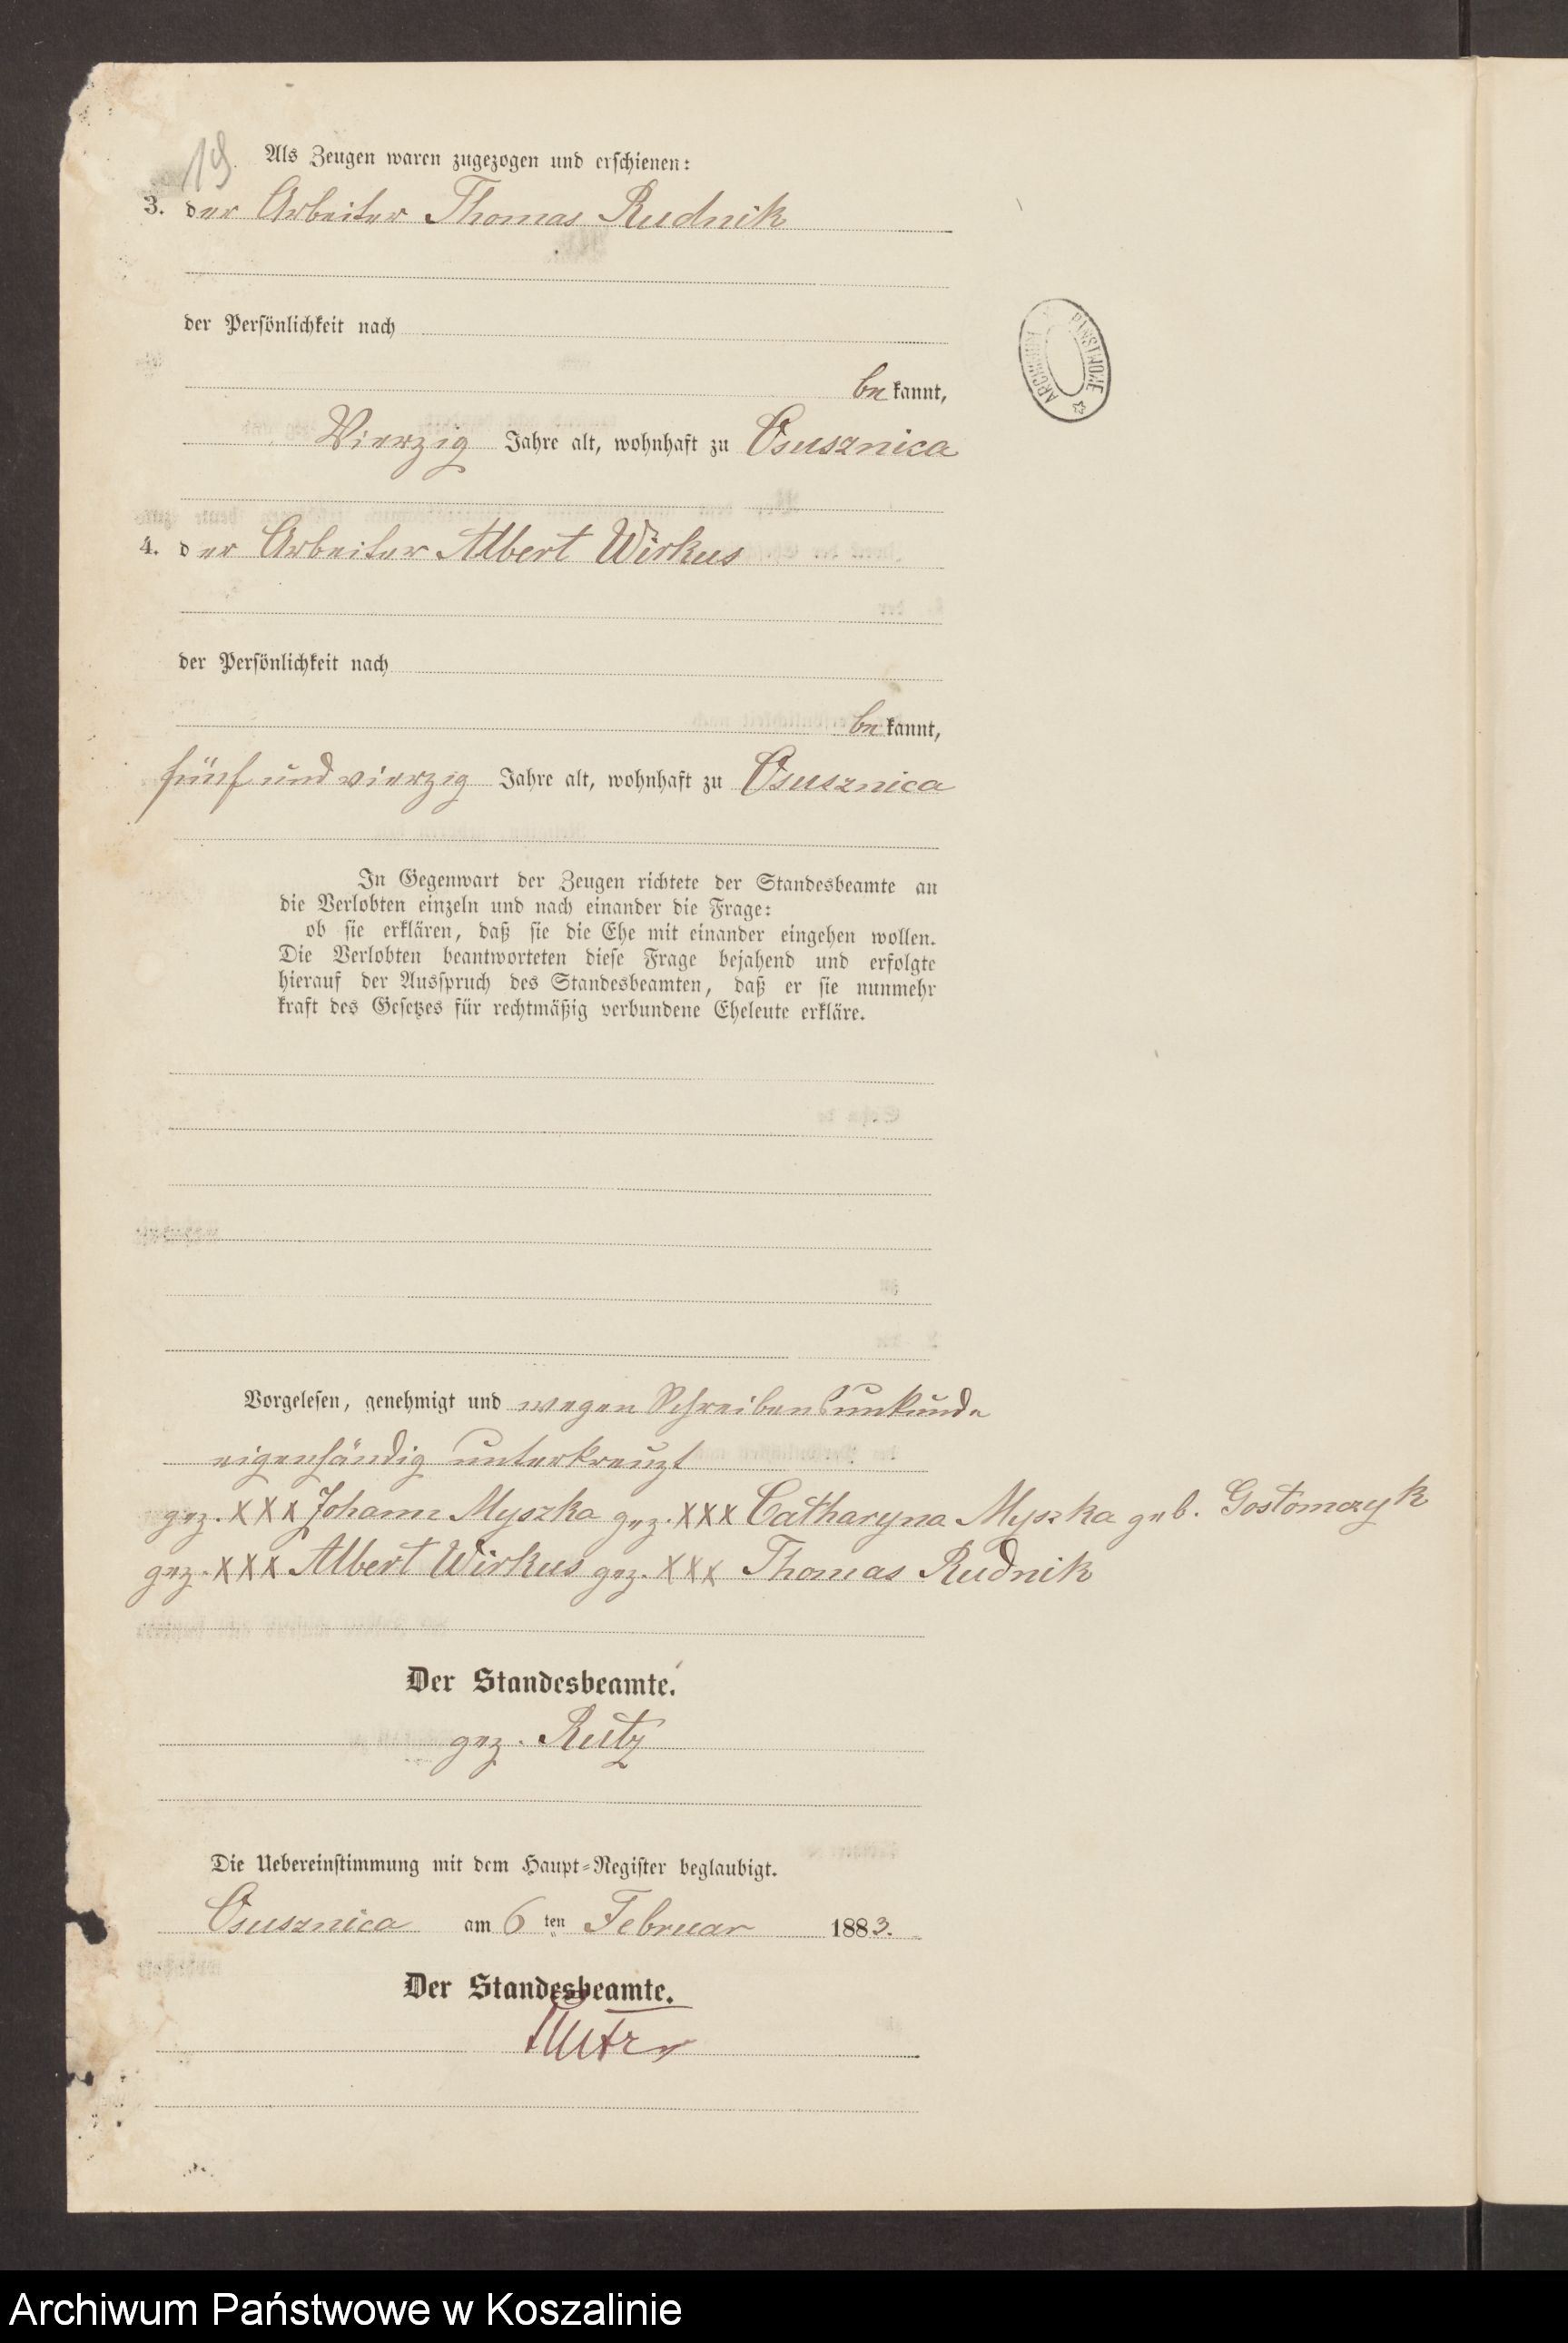 19.
Als Zeugen waren zugezogen und erschienen:
3. der Arbeiter Thomas Rudnik
der Persönlichkeit nach
be kannt,
Vierzig Jahre alt, wohnhaft zu Osusznica
4. der Arbeiter Albert Wirkus
der Persönlichkeit nach
be kannt,
fünf und vierzig Jahre alt, wohnhaft zu Osusznica
In Gegenwart der Zeugen richtete der Standesbeamte an
die Verlobten einzeln und nach einander die Frage:
ob sie erklären, daß sie die Ehe mit einander eingehen wollen.
Die Verlobten beantworteten diese Frage bejahend und erfolgte
hierauf der Ausspruch des Standesbeamten, daß er sie nunmehr
kraft des Gesetzes für rechtmäßig verbundene Eheleute erkläre.
Vorgelesen, genehmigt und wegen Schreibensunkunde
eigenhändig unterkreuzt
gez. XXX Johann Myszka gez. XXX Catharyna Myszka geb. Gostomczyk
gez. XXX Albert Wirkus gez. XXX Thomas Rudnik
Der Standesbeamte.
gez. Rutz
Die Uebereinstimmung mit dem Haupt-Register beglaubigt.
Osusznica am 6 ten Februar 1883.
Der Standesbeamte.
Rutz
ARCHIWUM PAŃSTWOWE
Archiwum Państwowe w Koszalinie